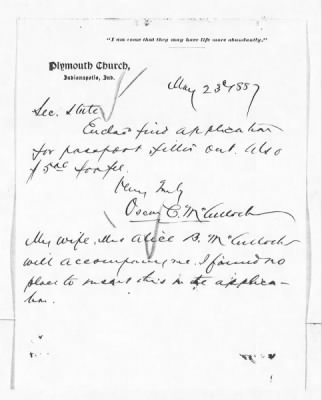 "I am come that they may have life more abundantly."
Plymouth Church,
Indianapolis, Ind.
May 23d 1887
Sec. State
Enclose find application
for passport filled out. Also
$5.00 for fee.
Very Truly
Oscar C. McCulloch
My wife, Mrs Alice B. McCulloch
will accompany me. I found no
place to insert this in the applica-
tion.